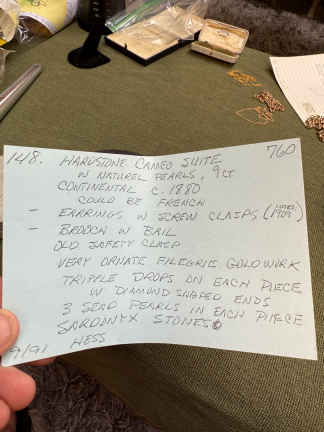 148. HARDSTONE CAMEO SUITE 760
W NATUREL PEARLS, 9 CT
CONTINENTAL C. 1880
COULD BE FRENCH
- EARRINGS W SCREW CLASPS (LATER 1909)
- BROOCH W BAIL
OLD SAFETY CLASP
VERY ORNATE FILEGREE GOLDWORK
TRIPPLE DROPS ON EACH PIECE
W DIAMOND SHAPED ENDS
3 SEED PEARLS IN EACH PIECE
SARDONYX STONES
9/91 HESS